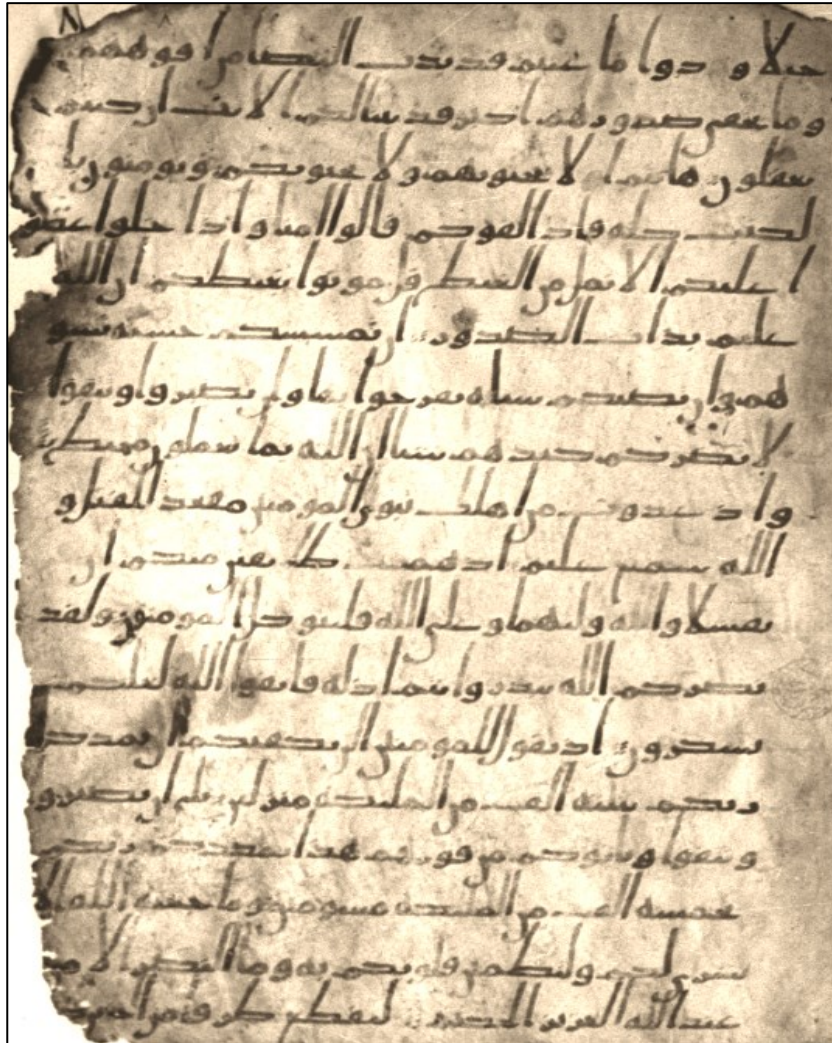 خبلا ودوا ما عنتم قد بدت البغضا من افوههم
وما تخفى صدورهم اكبر قد بينا لكم الايت ان كنتم
تعقلون هانتم اولا تحبونهم ولا يحبونكم وتومنون با
لكتب كله واذا لقوكم قالوا امنا واذا خلوا عضو
ا عليكم الانمل من الغيظ قل موتوا بغيظكم ان الله
عليم بذات الصدور ان تمسسكم حسنه تسو
هم وان تصبكم سيه يفرحوا بها وان تصبروا وتتقوا
لا يضركم كيدهم شيا ان الله بما يعملون محيط
واذ غدوت من اهلك تبوى المومنين مقعد للقتل و
الله سميع عليم اذ همت طيفتن منكم ان
تفشلا والله وليهما وعلى الله فليتوكل المومنون ولقد
نصركم الله ببدر وانتم اذله فاتقوا الله لعلكم
تشكرون اذ تقول للمومنين الن يكفيكم ان يمدكم
ربكم بثلثه الف من الملئكه منزلين بلى ان تصبروا
وتتقوا وياتوكم من فورهم هذا يمددكم ربكم
بخمسه الف من الملئكه مسومين وما جعله الله الا
بشرى لكم ولتطمين قلوبكم به وما النصر الا من
عند الله العزيز الحكيم ليقطع طرفا من الذين